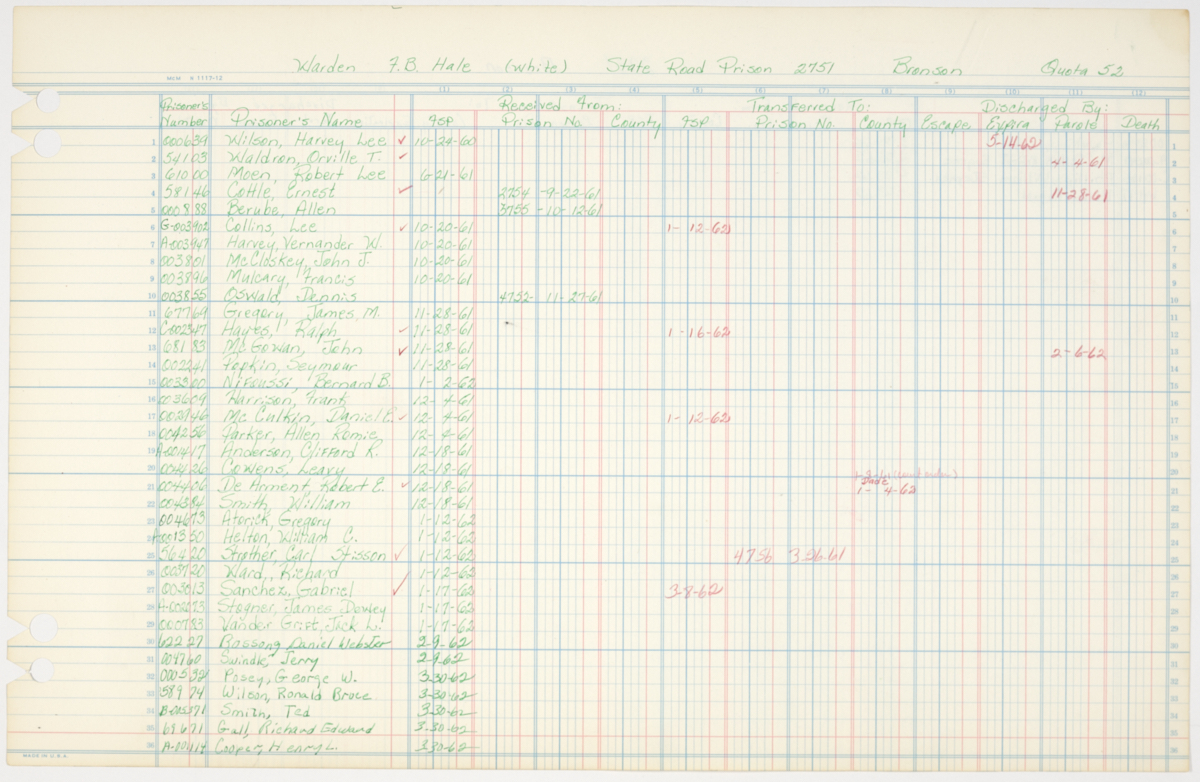 Warden F.B. Hale (White) State Road Prison 2751 Bronson Quota 52
MCM N 1117-12
(1) (2) (3) (4) (5) (6) (7) (8) (9) (10) (11) (12)
Prisoner's Received From: Transferred To: Discharged By:
Number Prisoner's Name FSP Prison No. County FSP Prison No. County Escape Expira Parole Death
1 000639 Wilson, Harvey Lee ✓ 10-24-60 5-14-62 1
2 54103 Waldron, Orville T. ✓ 4-4-61 2
3 61000 Moen, Robert Lee 6-21-61 3
4 58146 Cottle, Ernest ✓ 2754 -9-22-61 11-28-61 4
5 000888 Berube, Allen 3755 -10-12-61 5
6 G-003902 Collins, Lee ✓ 10-20-61 1-12-62 6
7 A-003947 Harvey, Vernander W. 10-20-61 7
8 003801 McCloskey, John J. 10-20-61 8
9 003896 Mulcary, Francis 10-20-61 9
10 003855 Oswald, Dennis 4752- 11-27-61 10
11 67769 Gregory, James M. 11-28-61 11
12 C-002347 Hayes, Ralph ✓ 11-28-61 1-16-62 12
13 68183 McGowan, John ✓ 11-28-61 2-6-62 13
14 002241 Popkin, Seymour 11-28-61 14
15 003300 Bernard B. 1-2-62 15
16 003609 Harrison, Frank 12-4-61 16
17 Mc Culkin, Daniel E. ✓ 12-4-61 1-12-62 17
18 004256 Parker, Allen Romie 12-4-61 18
19 Anderson, Clifford R. 12-18-61 19
20 004426 Cowens, Leavy 12-18-61 20
21 004406 De Arment, Robert E. ✓ 12-18-61 Dade 1-4-62 21
22 004384 Smith, William 12-18-61 22
23 004673 Gregory 1-12-62 23
24 Helton, William C. 1-12-62 24
25 56420 Strother, Carl Stisson ✓ 1-12-62 4756 3-26-61 25
26 003720 Ward, Richard 1-12-62 26
27 003013 Sanchez, Gabriel ✓ 1-17-62 3-8-62 27
28 Stogner, James Dewey 1-17-62 28
29 000783 Vander Grift, Jack L. 1-17-62 29
30 62227 Bassong Daniel Webster 2-9-62 30
31 004760 Swindle, Jerry 2-9-62 31
32 000532 Posey, George W. 3-30-62 32
33 58974 Wilson, Ronald Bruce 3-30-62 33
34 Smith, Ted 3-30-62 34
35 69671 Gall, Richard Edward 3-30-62 35
36 Cooper, Henry L. 3-30-62 36
MADE IN U.S.A.